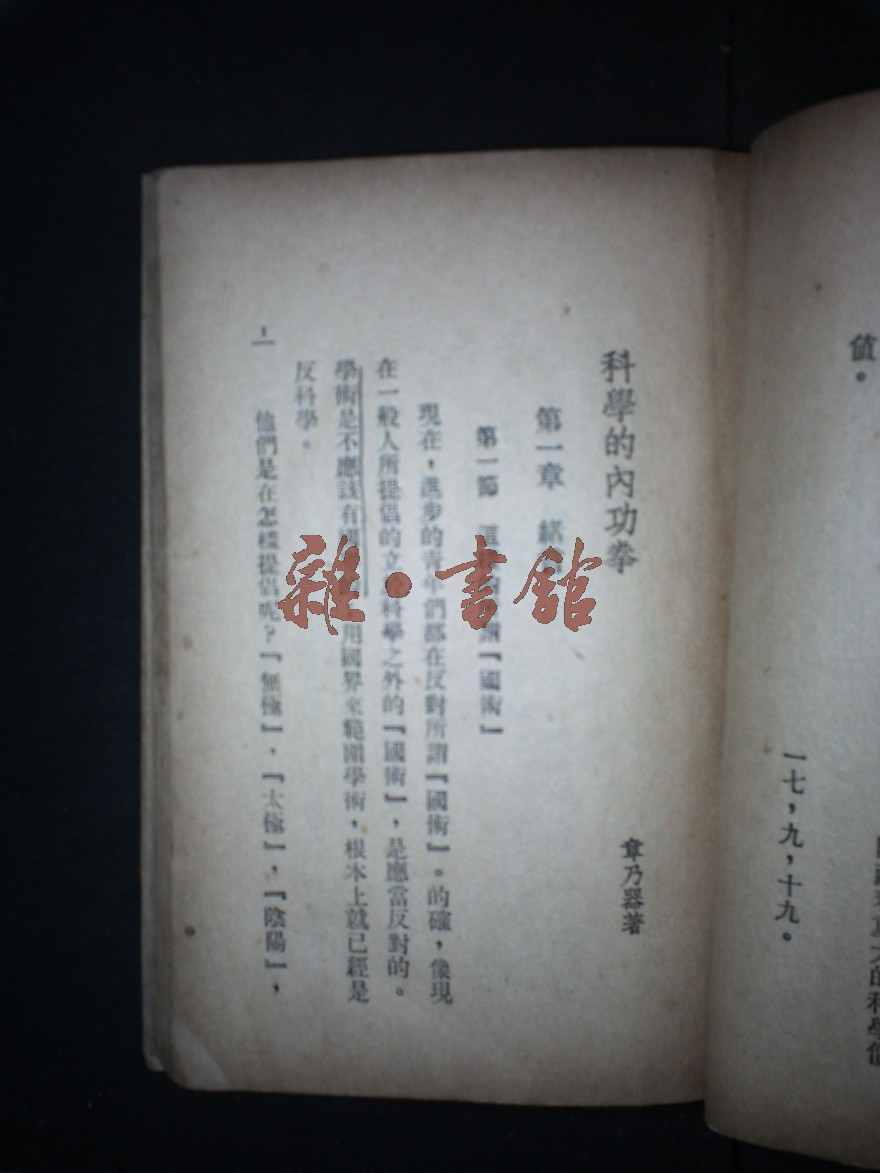 值。
一七，九，十九。
科學的內功拳
章乃器著
第一章 緒
第一節 這 謂『國術』
現在，進步的青年們都在反對所謂『國術』。的確，像現
在一般人所提倡的立 科學之外的『國術』，是應當反對的。
學術是不應該有國 用國界來範圍學術，根本上就已經是
反科學。
他們是在怎樣提倡呢？『無極』，『太極』，『陰陽』，
1
雜·書館